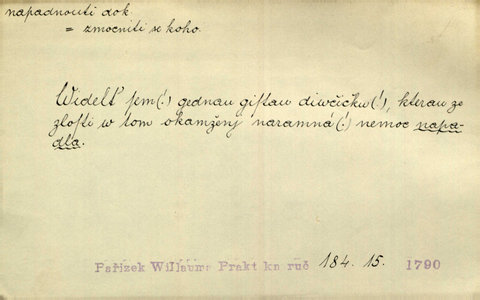 napadnouti dok.
= zmocniti se koho.
Widělť sem(!) gednau giftau diwčičku(!), kterau ze
zlosti w tom okamženj naramná(!) nemoc napa-
dla.
Pařízek Willaume Prakt kn ruč 184. 15. 1790